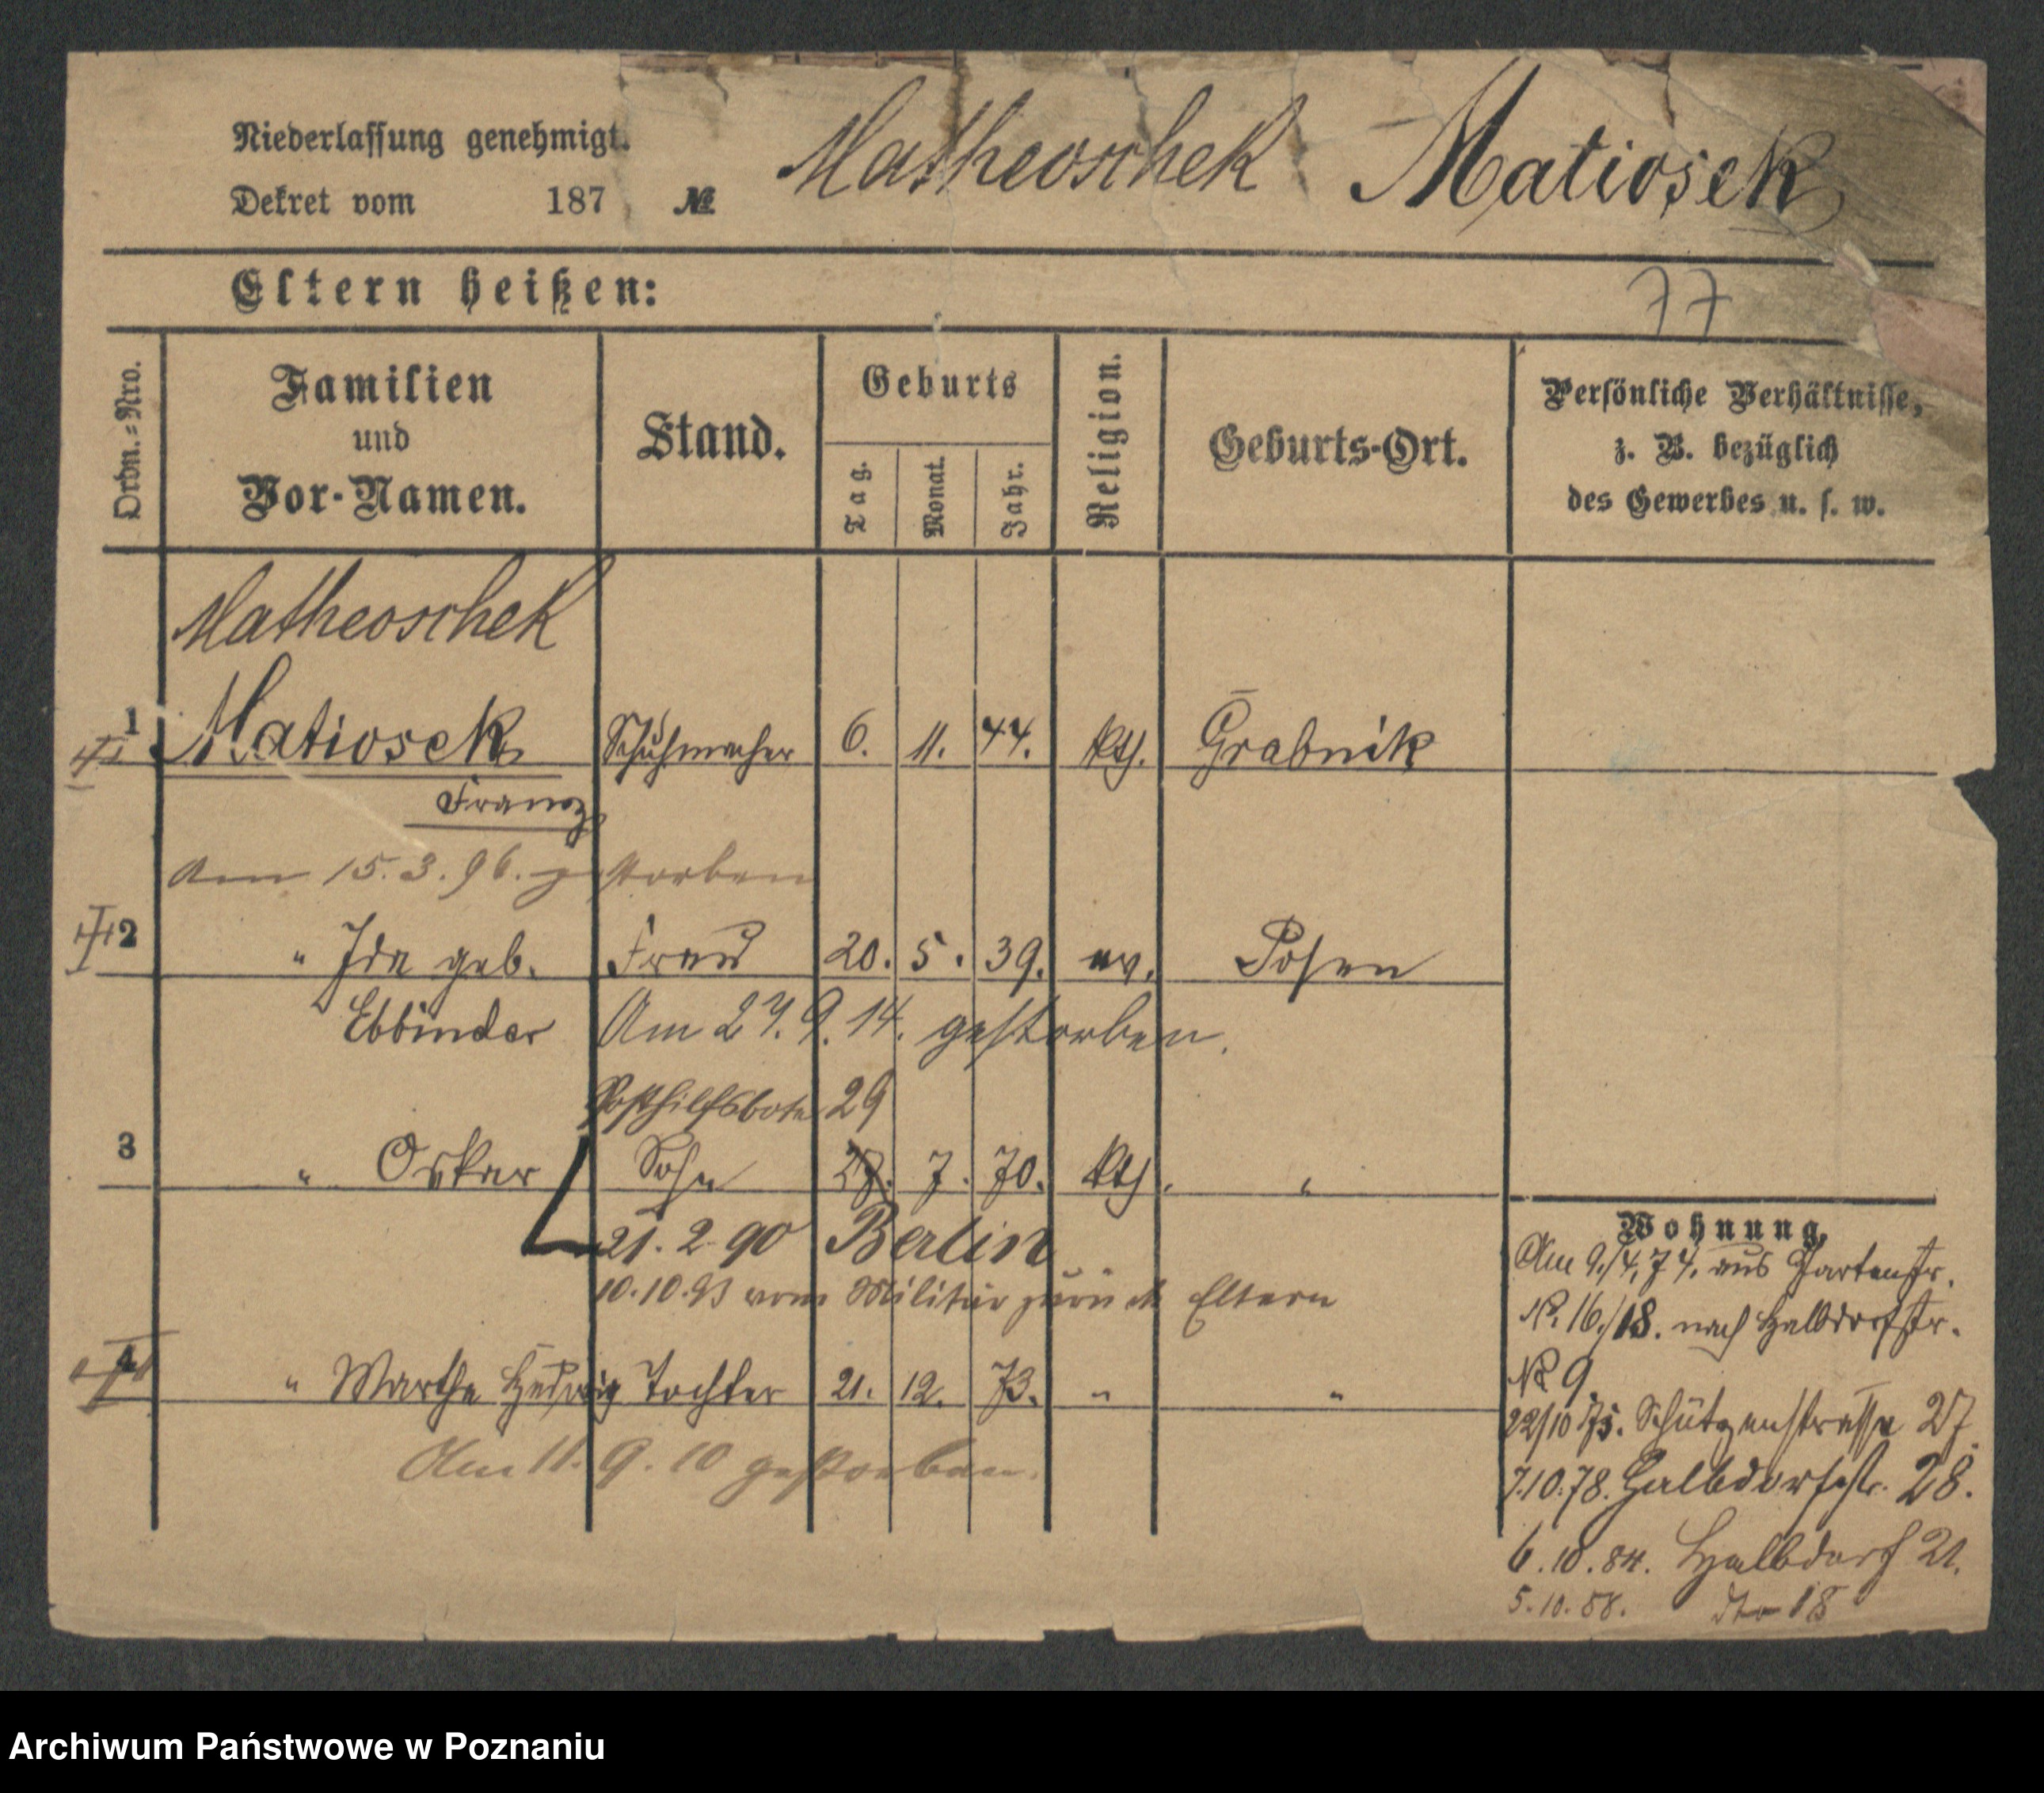 Niederlassung genehmigt.
Dekret vom 187 №
Matheoschek Matiosek
Eltern heißen:
77
Ordn.=Nro.
Familien und Vor-Namen.
Stand.
Geburts
Tag. Monat. Jahr.
Religion.
Geburts-Ort.
Persönliche Verhältnisse,
z. B. bezüglich
des Gewerbes u. s. w.
Matheoschek
1 Matiosek Schuhmacher 6. 11. 44. kth. Grabnik
Franz
Am 15.3.96. gestorben
2 " Ida geb. Frau 20. 5. 39. ev. Posen
Ebbinder Am 27.9.14. gestorben.
Posthilfsbote 29
3 " Oskar Sohn 7. 70. kth. "
21.2.90 Berlin
10.10.93 vom Militär zurück Eltern
4 " Marthe Hedwig Tochter 21. 12. 73. " "
Am 11.9.10 gestorben.
Wohnung.
Am 9./4.74. aus Gartenstr.
N. 16./18. nach Halbdorfstr.
N 9
22/10 75. Schützenstrasse 27
7.10.78. Halbdorfstr. 28.
6.10.84. Halbdorf 21.
5.10.88. dto 18
Archiwum Państwowe w Poznaniu